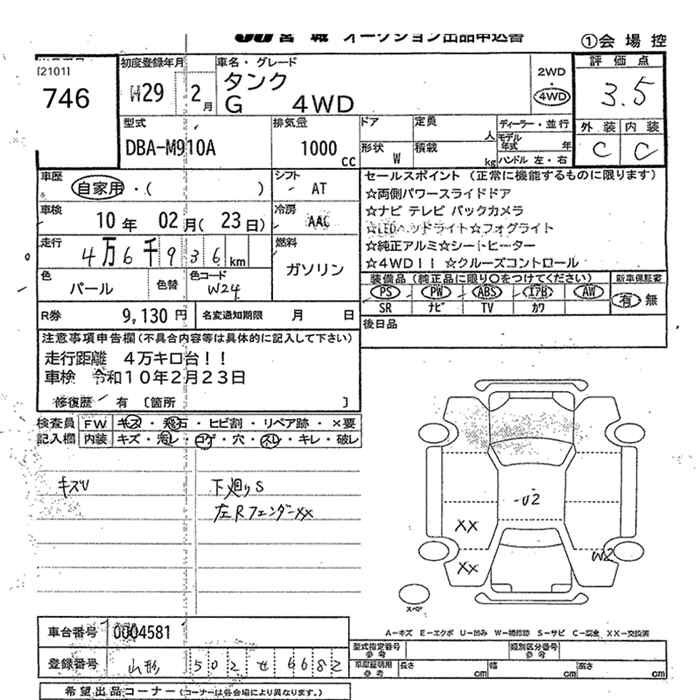 JU 宮城 オークション出品申込書
①会場控
[2101]
746
初度登録年月
H29 2月
車名・グレード
タンク
G 4WD
2WD
4WD
評価点
3.5
外装 内装
C C
型式
DBA-M910A
排気量
1000 cc
ドア
形状 W
定員 人
積載 kg
ディーラー・並行
モデル年式 年
ハンドル 左・右
車歴
自家用・( )
シフト
AT
車検
10年 02月(23日)
冷房
AAC
走行
4万6千936km
燃料
ガソリン
色
パール
色替
色コード
W24
R券 9,130円
名変期限 月 日
セールスポイント (正常に機能するものに限ります)
☆両側パワースライドドア
☆ナビ テレビ バックカメラ
☆LEDヘッドライト☆フォグライト
☆純正アルミ☆シートヒーター
☆4WD!! ☆クルーズコントロール
装備品 (純正品に限り○をつけてください)
新車保証書
PS PW ABS エアB AW
有・無
SR ナビ TV カワ
後日品
注意事項申告欄 (不具合内容等は具体的に記入して下さい)
走行距離 4万キロ台!!
車検 令和10年2月23日
修復歴 有 [箇所 ]
検査員記入欄
FW キズ・飛石・ヒビ割・リペア跡・×要
内装 キズ・汚レ・コゲ・穴・スレ・キレ・破レ
キズU
下廻りS
左RフェンダーXX
U2
XX
XX
W2
スペア
A-キズ E-エクボ U-凹み W-補修跡 S-サビ C-腐食 XX-交換済
車台番号 0004581
登録番号 山形 502 せ 6682
型式指定番号 参考
類別区分番号 参考
車庫証明用 参考
長さ cm
幅 cm
高さ cm
希望出品コーナー (コーナーは各会場により異なります。)